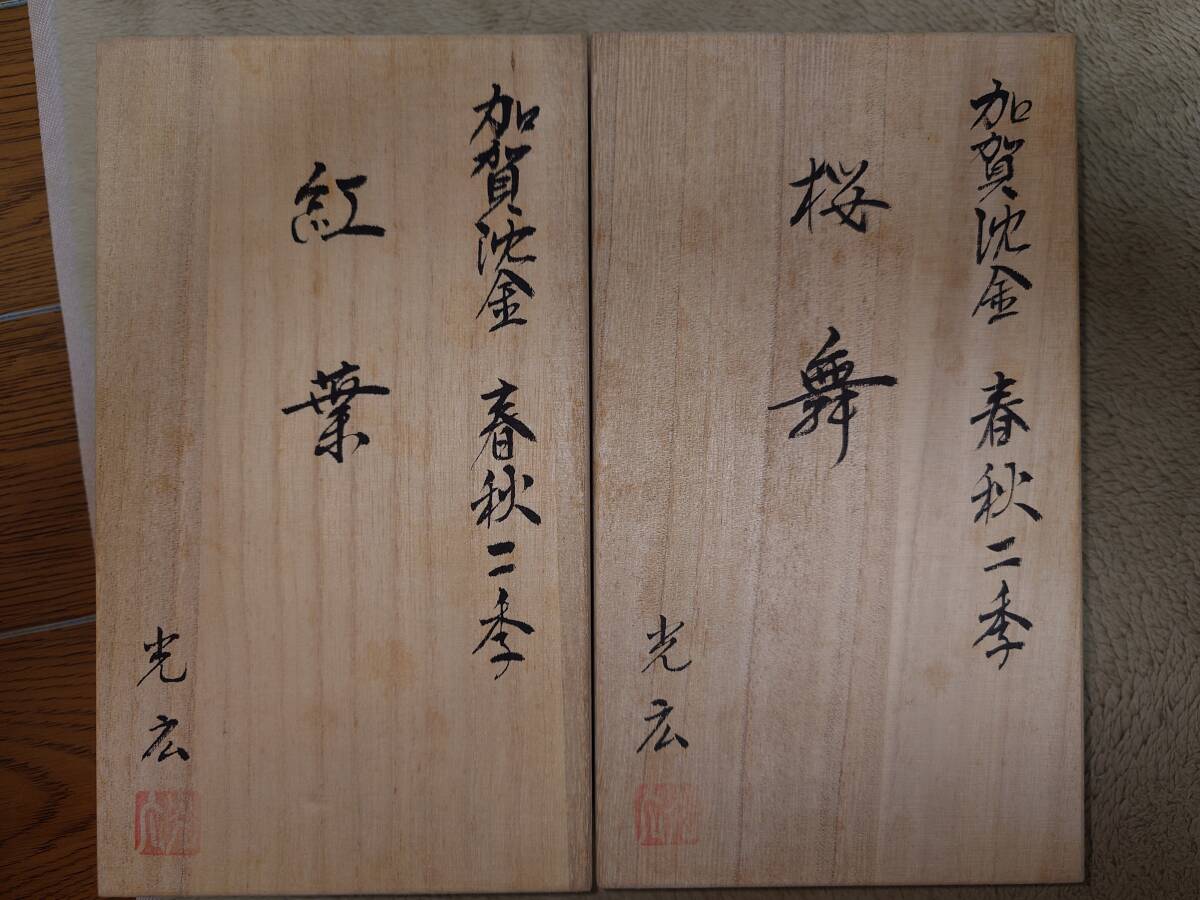 加賀沈金 春秋二季
桜舞
光広
加賀沈金 春秋二季
紅葉
光広